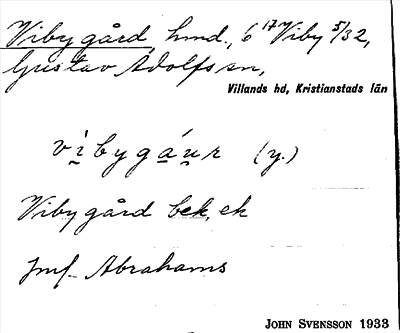 Viby gård, hmd., 6 17 Viby 5/32,
Gustav Adolfs sn,
Villands hd, Kristianstads län
vìbygáur (y.)
Viby gård bek, ek
Jmf. Abrahams
JOHN SVENSSON 1933